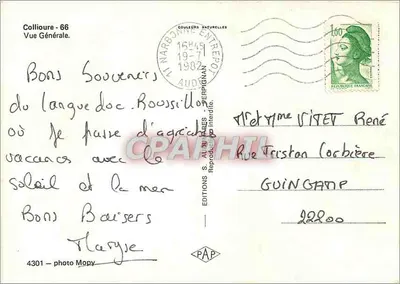 Collioure - 66
Vue Générale.
COULEURS NATURELLES
11 NARBONNE ENTREPOT
16H45
19-7
1982
AUDE
1,60
REPUBLIQUE FRANÇAISE
Bons Souvenirs
du Languedoc-Roussillon
où je passe d'agréables
vacances avec le
soleil et la mer
Bons Baisers
Maryse
EDITIONS S. PERPIGNAN
Reprod. interdite.
Mr et Mme VITET René
Rue Tristan Corbière
GUINGAMP
22200
CPARPHIL
4301 - photo Mopy
PAP